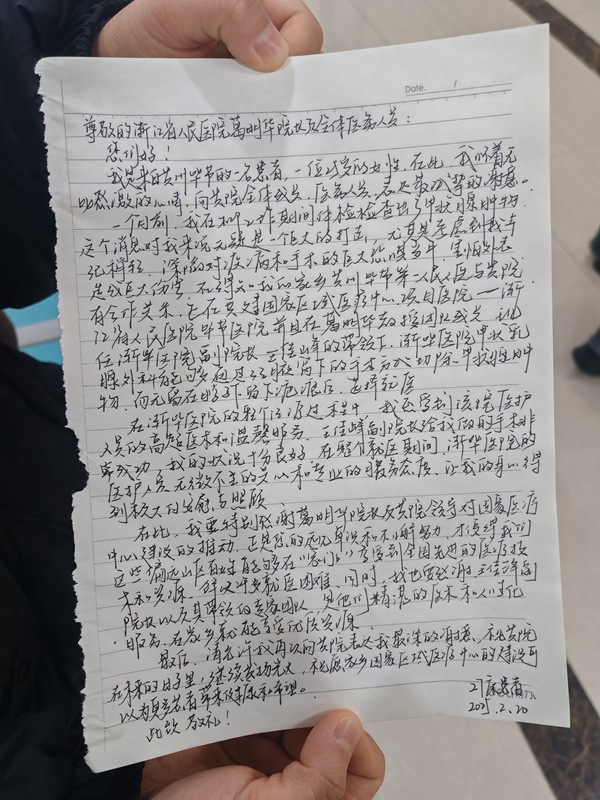 Date. /
尊敬的浙江省人民医院葛明华院长及全体医务人员：
您们好！
我是来自贵州毕节的一名患者，一位25岁的女性，在此，我怀着无
比感激的心情，向贵院全体成员、医务人员，表达最诚挚的谢意。
一个月前，我在杭工作期间体检检查出甲状腺肿物，
这个消息对我来说无疑是一个巨大的打击，尤其是考虑到我年
纪尚轻，深陷对医疗和手术的巨大恐惧当中，害怕外表
造成巨大伤害，在得知我的家乡贵州毕节第一人民医院与贵院
有合作关系，正在共建国家区域医疗中心项目医院——浙
江省人民医院毕节医院，并且在葛明华支援团队成员，现
任浙毕医院副院长王佳峰的带领下，浙毕医院甲状乳
腺外科能够通过经腋窝下的手术方式切除甲状腺肿
物，而无需在脖子留下疤痕后，选择就医
在浙毕医院的整个治疗过程中，我感受到该院医护
人员的高超医术和温馨服务，王佳峰副院长给我做的手术非
常成功，我的状况十分良好，在整个就医期间，浙毕医院的
医护人员无微不至的关心和专业的服务态度，让我的身心得
到极大的安慰与照顾。
在此，我要特别感谢葛明华院长及贵院领导对国家医疗
中心建设的推动，正是您的远见卓识和不懈努力，才使得我们
这些偏远山区的患者能够在“家门口”享受到全国先进的医疗技
术和资源，解决许多就医困难，同时，我也要感谢王佳峰副
院长以及其带领的专家团队，是他们精湛的技术和人性化
服务，在家乡就能享受优质资源。
最后，请允许我再次向贵院表达我最深的谢意，祝贵院
在未来的日子里，继续发扬光大，祝愿家乡国家区域医疗中心的建设可
以为更多患者带来健康和希望。
此致 敬礼！
2025.2.20